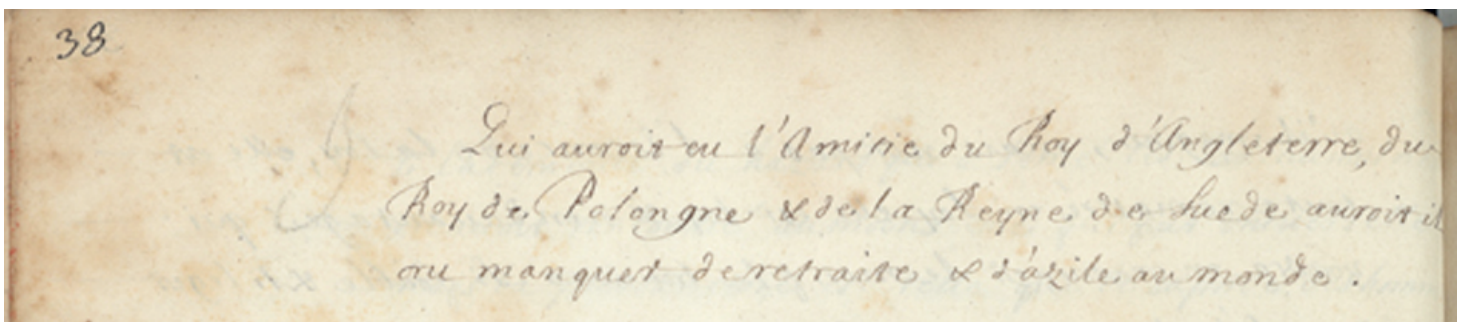 38
Qui auroit eu l'Amitie du Roy d'Angleterre, du
Roy de Polongne & de la Reyne de Suede auroit il
cru manquer de retraite & d'azile au monde.